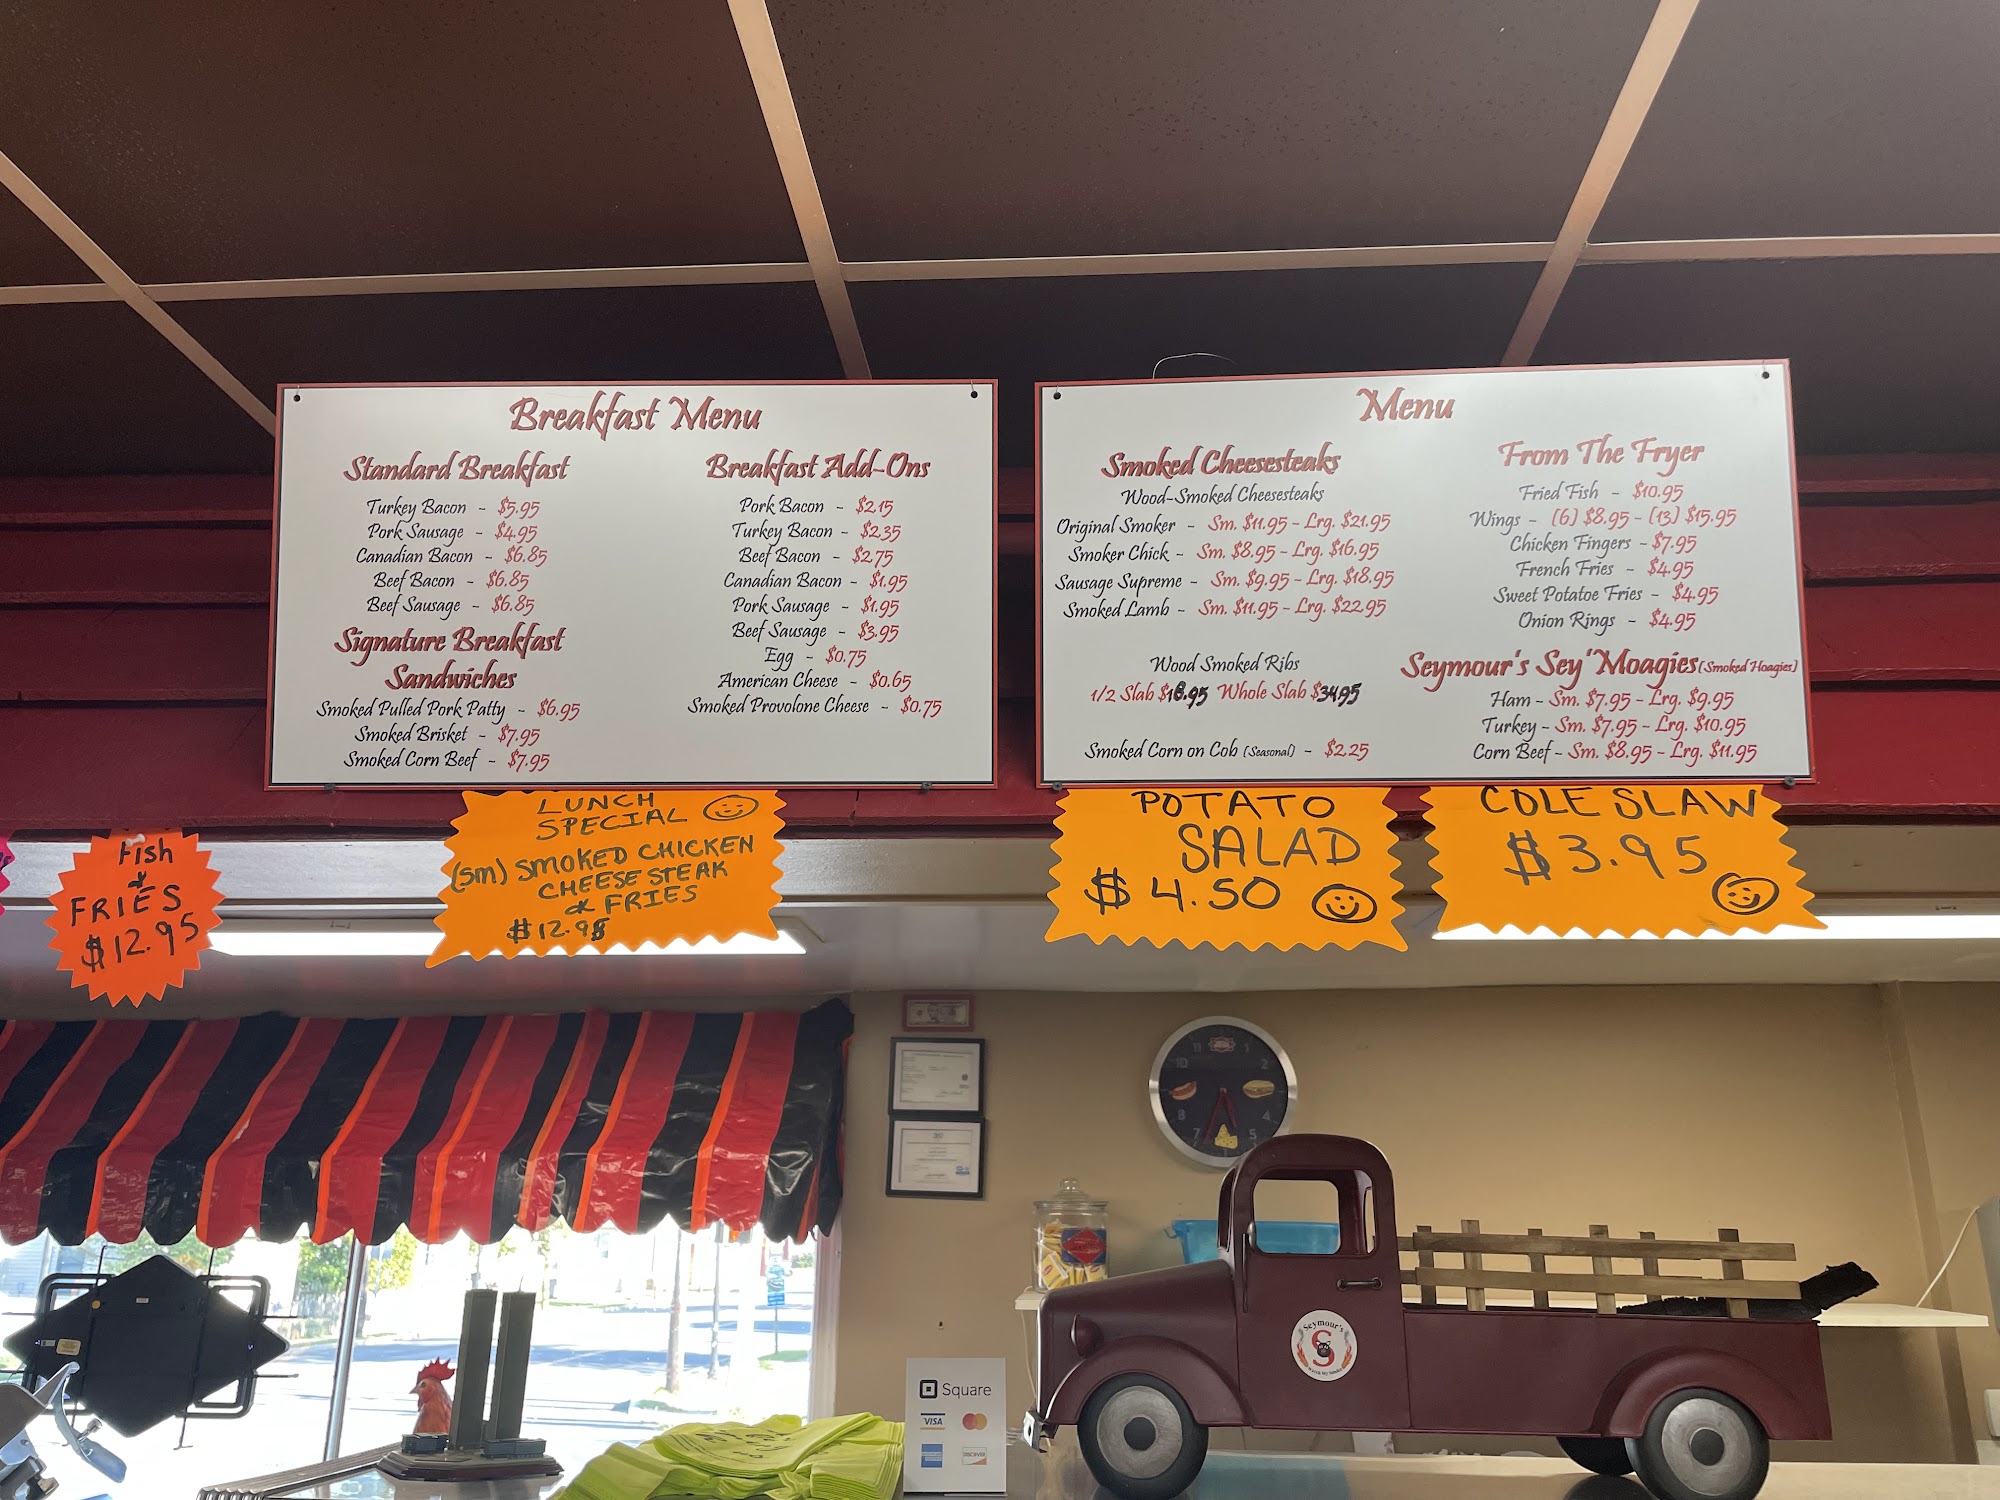 Breakfast Menu
Standard Breakfast
Turkey Bacon - $5.95
Pork Sausage - $4.95
Canadian Bacon - $6.85
Beef Bacon - $6.85
Beef Sausage - $6.85
Signature Breakfast
Sandwiches
Smoked Pulled Pork Patty - $6.95
Smoked Brisket - $7.95
Smoked Corn Beef - $7.95
Breakfast Add-Ons
Pork Bacon - $2.15
Turkey Bacon - $2.35
Beef Bacon - $2.75
Canadian Bacon - $1.95
Pork Sausage - $1.95
Beef Sausage - $3.95
Egg - $0.75
American Cheese - $0.65
Smoked Provolone Cheese - $0.75
Menu
Smoked Cheesesteaks
Wood-Smoked Cheesesteaks
Original Smoker - Sm. $11.95 - Lrg. $21.95
Smoker Chick - Sm. $8.95 - Lrg. $16.95
Sausage Supreme - Sm. $9.95 - Lrg. $18.95
Smoked Lamb - Sm. $11.95 - Lrg. $22.95
Wood Smoked Ribs
1/2 Slab $18.95 Whole Slab $34.95
Smoked Corn on Cob (Seasonal) - $2.25
From The Fryer
Fried Fish - $10.95
Wings - (6) $8.95 - (13) $15.95
Chicken Fingers - $7.95
French Fries - $4.95
Sweet Potatoe Fries - $4.95
Onion Rings - $4.95
Seymour's Sey'Moagies (Smoked Hoagies)
Ham - Sm. $7.95 - Lrg. $9.95
Turkey - Sm. $7.95 - Lrg. $10.95
Corn Beef - Sm. $8.95 - Lrg. $11.95
Fish
&
FRIES
$12.95
LUNCH
SPECIAL
(sm) SMOKED CHICKEN
CHEESE STEAK
& FRIES
$12.95
POTATO
SALAD
$4.50
COLE SLAW
$3.95
10
11
1
2
4
5
7
8
Square
VISA
DISCOVER
Seymour's
S